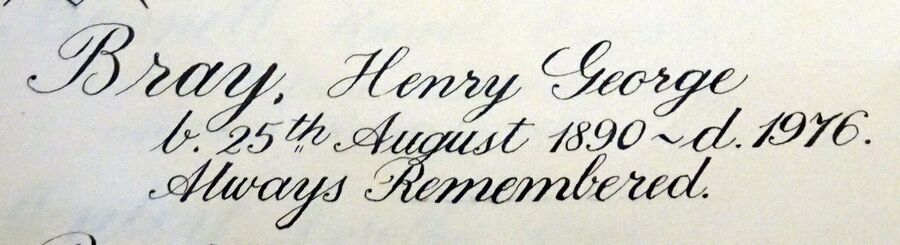 Bray, Henry George
b. 25th August 1890 ~ d. 1976.
Always Remembered.